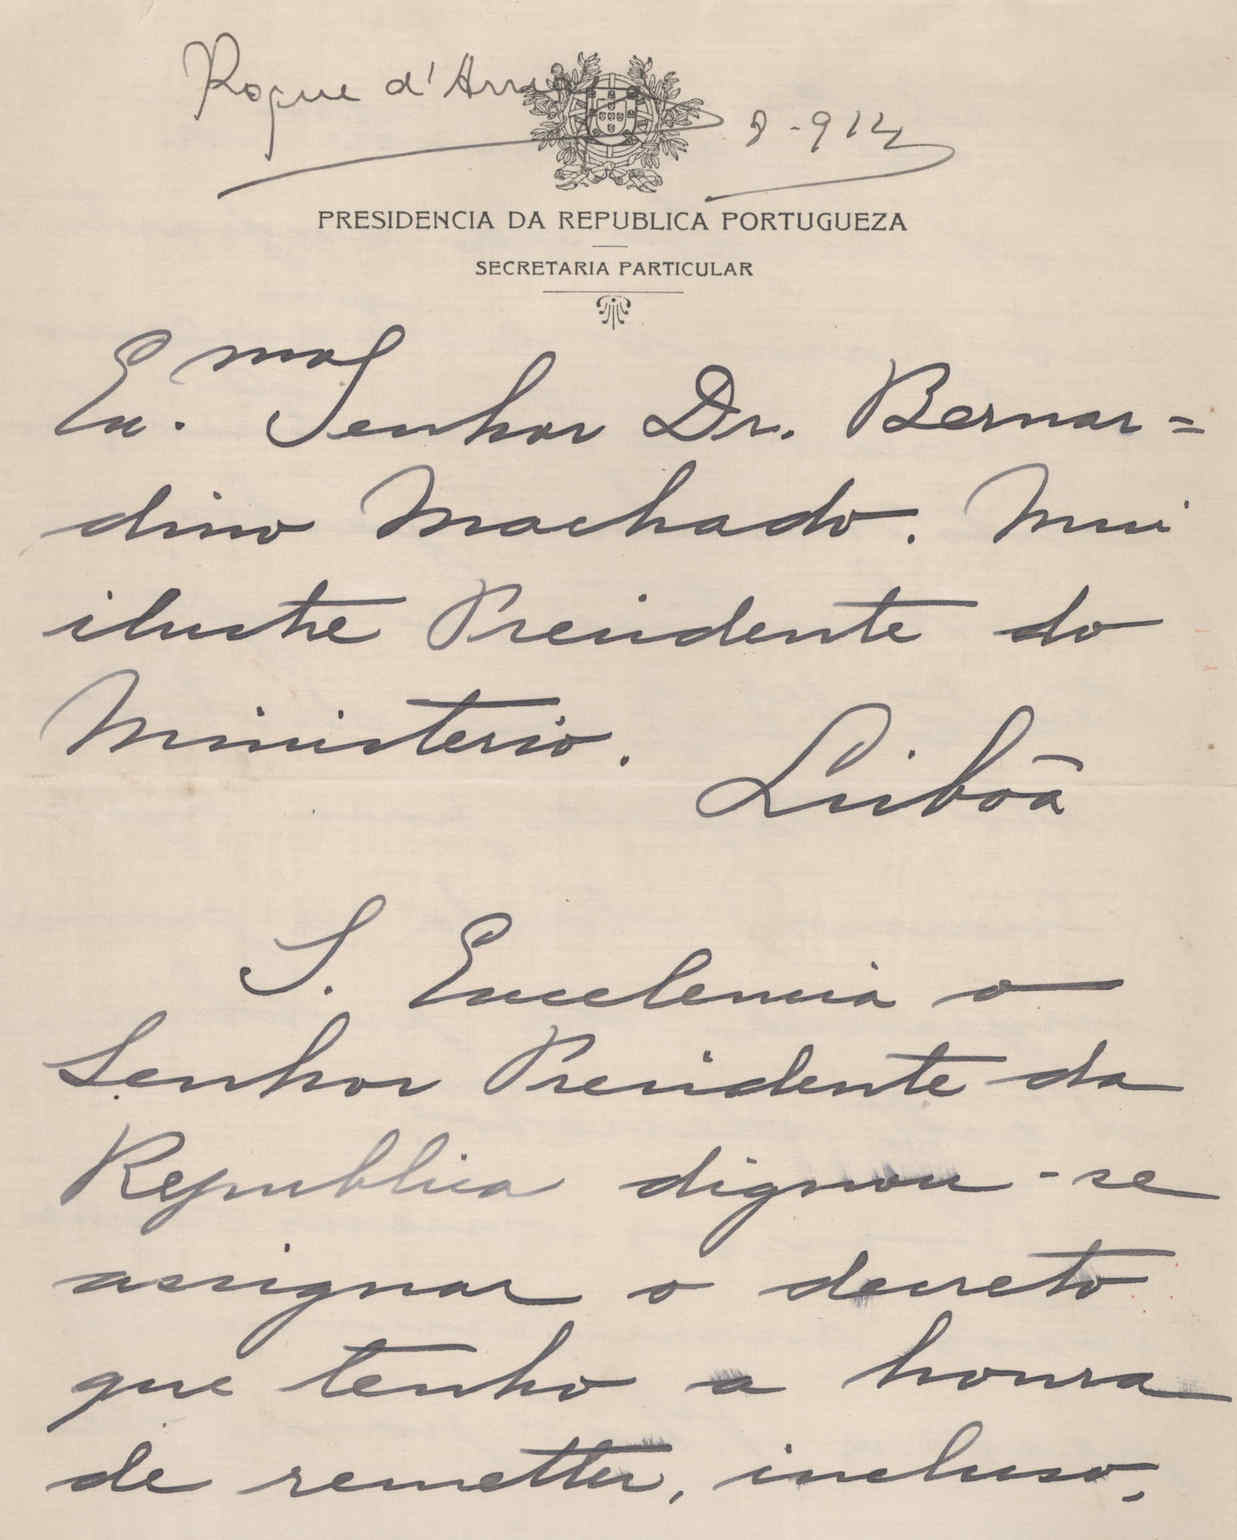 Roque d'Arriaga 8-914
PRESIDENCIA DA REPUBLICA PORTUGUEZA
SECRETARIA PARTICULAR
Ex.mo Senhor Dr. Bernar=
dino Machado. Mui
ilustre Presidente do
Ministerio.
Lisbôa
S. Excelencia o
Senhor Presidente da
Republica dignou-se
assignar o decreto
que tenho a honra
de remetter, incluso,